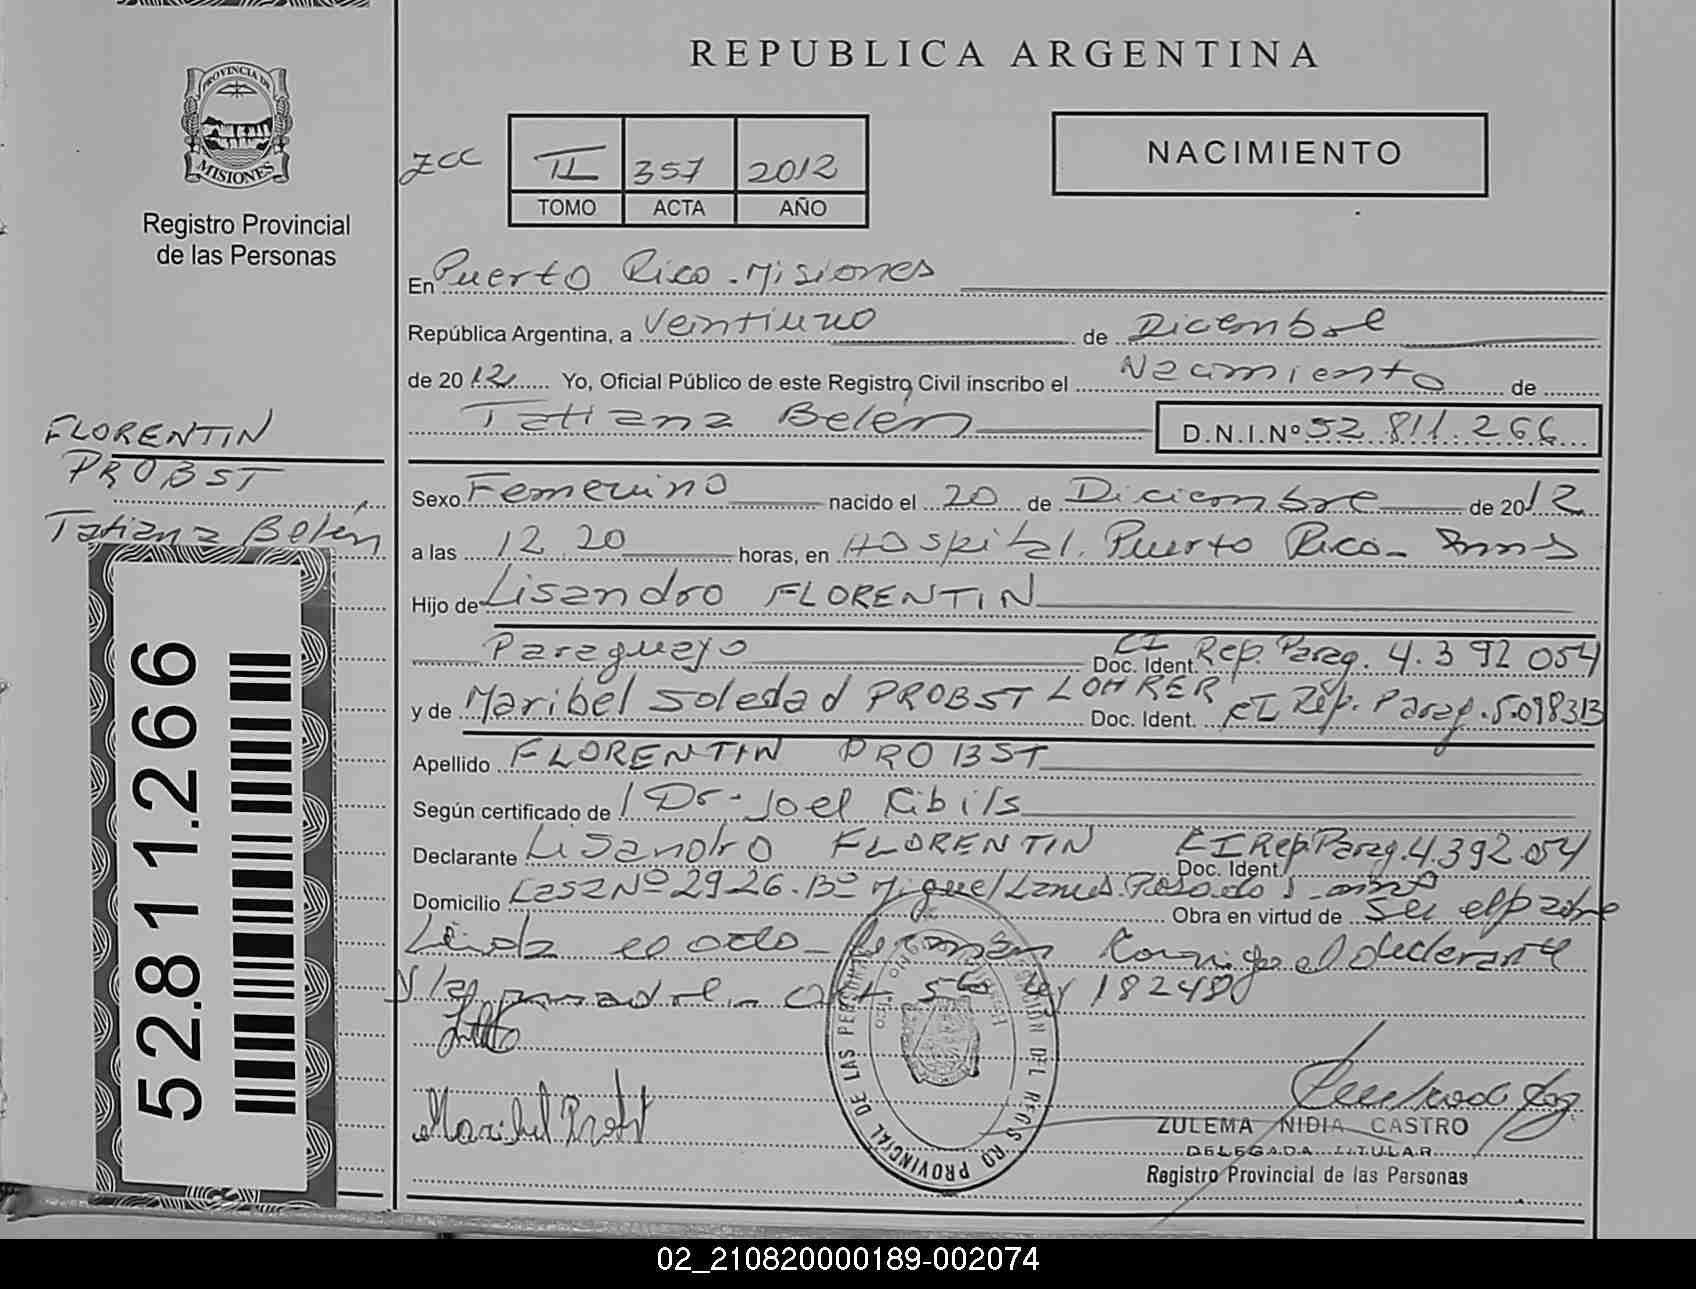 REPUBLICA ARGENTINA
PROVINCIA DE
MISIONES
Registro Provincial
de las Personas
NACIMIENTO
II 357 2012
TOMO ACTA AÑO
En Puerto Rico - Misiones
República Argentina, a Veintiuno de Diciembre
de 2012 Yo, Oficial Público de este Registro Civil inscribo el Nacimiento de
Tatiana Belén D.N.I.Nº 52.811.266
FLORENTIN
PROBST
Tatiana Belén
Sexo Femenino nacido el 20 de Diciembre de 2012
a las 12 20 horas, en Hospital. Puerto Rico -
Hijo de Lisandro FLORENTIN
Paraguayo Doc. Ident. CI Rep. Parag. 4.392 054
y de Maribel Soledad PROBST LOHRER Doc. Ident. CI Rep. Parag. 5.098313
Apellido FLORENTIN PROBST
Según certificado de Dr. Joel Cibils
Declarante Lisandro FLORENTIN Doc. Ident. CI Rep. Parag. 4.392.054
Domicilio Casa Nº 2926. Bº Miguel Lanus. Posadas Obra en virtud de ser el padre
Leída el acta - firman conmigo el declarante
y la madre - Ley 18248
Maribel Probst
ZULEMA NIDIA CASTRO
DELEGADA TITULAR
Registro Provincial de las Personas
52.811.266
02_210820000189-002074